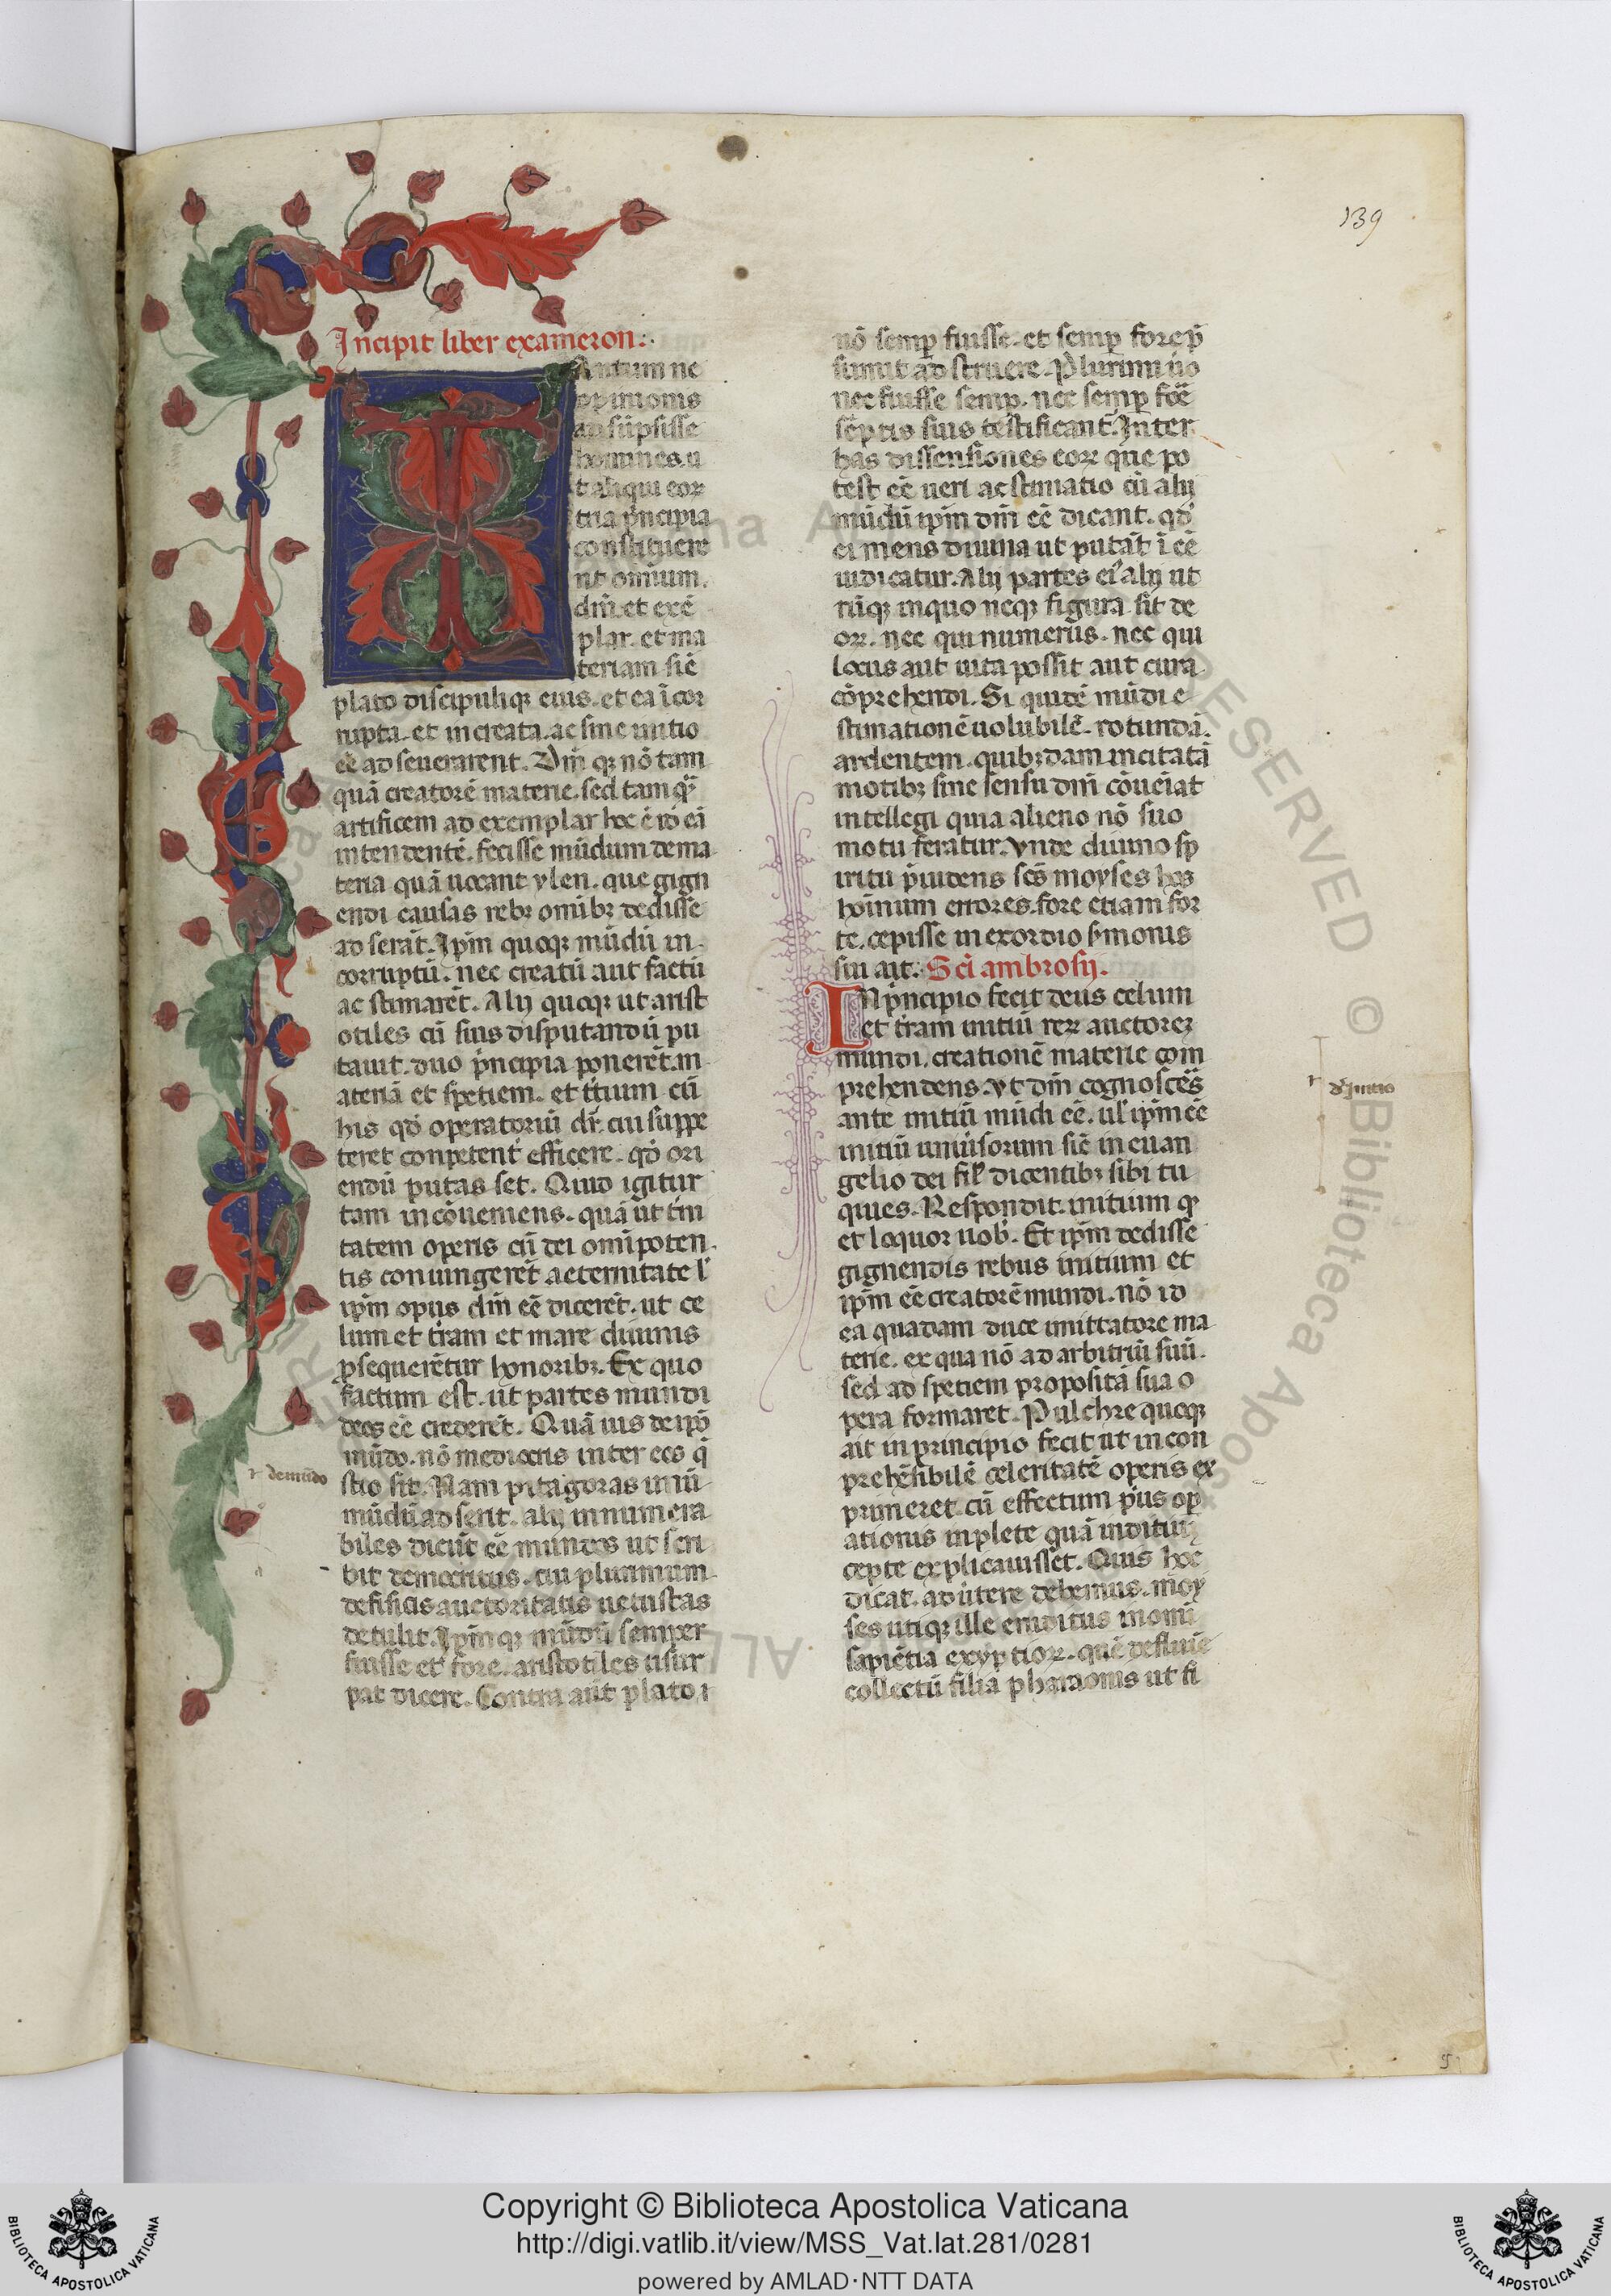 139
Incipit liber exameron.
Antum ne
opinionis
adsūpsisse
homines. u
t aliqui eoꝝ
tria p̄ncipia
constituere
nt omīum.
dm̄. et exē
plar. et ma
teriam sic̄
plato discipuliqꝫ eius. et ea ī cor
rupta. et increata. ac sine initio
eē adseuerarent. Dm̄ qꝫ nō tam
quā creatorē materie. sed tam qᷓ
artificem ad exemplar hoc ē id eā
intendentē. fecisse mūdum de ma
teria quā uocant ylen. que gign
endi causas rebꝫ omībꝫ dedisse
ad serāt. Ip̄m quoqꝫ mūdū in
corruptū. nec creatū aut factū
ac stimarēt. Alij quoqꝫ ut arist
otiles cū suis disputandū pu
tauit. duo p̄ncipia ponerēt. m
ateriā et spetiem. et t̄tium cū
his qd̄ operatoriū dr̄. cui suppe
teret conpetent̄ efficere. qd̄ ori
endū putas set. Quid igitur
tam incōueniens. quā ut t̄ni
tatem operis cū dei omīpoten
tis coniungerēt aeternitate l̄
ip̄m opus dm̄ eē dicerēt. ut ce
lum et t̄ram et mare diuinis
ꝑsequerētur honoribꝫ. Ex quo
factum est. ut partes mundi
deos eē crederēt. Quā uis de ip̄o
mūdo. nō mediocris inter eos q̄
stio sit. Nam pitagoras unū
mūdū ad serit. alij innumera
biles dicūt eē mundos ut scri
bit democritus. cui plurimum
de fisicis auctoritatis uetustas
detulit. Ip̄mqꝫ mūdū semper
fuisse et fore. aristotiles usur
pat dicere. Contra aūt plato
r̄ de mūdo
nō semꝑ fuisse. et semꝑ fore p̄
sumit ad struere. Plurimi ūo
nec fuisse semꝑ. nec semꝑ foē
sc̄ptis suis testificant̄. Inter
has dissensiones eoꝝ que po
test eē ueri ac stimatio cū alij
mūdū ip̄m dm̄ eē dicant. qd̄
ei mens diuina ut putāt ī eē
iudicatur. Alij partes ei᷒ alij ut
rūqꝫ in quo neqꝫ figura sit de
oꝝ. nec qui numerus. nec qui
locus aut uita possit aut cura
cōprehendi. Si quidē mūdi e
stimationē uolubilē. rotundā.
ardentem. quibꝫdam incitatā
motibꝫ sine sensu dm̄ cōuēiat
intellegi quia alieno nō suo
motu feratur. Vnde diuino sp
iritu p̄uidens sc̄s moyses hos
hoīnum errores. fore etiam for
te. cepisse in exordio s̄monis
sui ait. Sci ambrosij.
IN p̄ncipio fecit deus celum
et t̄ram initiū reꝝ auctoreꝫ
mundi. creationē materie com
prehendens. Vt dm̄ cognoscēs
ante initiū mūdi eē. ul̄ ip̄m eē
initiū uniūsorum sic̄ in euan
gelio dei fil̄ dicentibꝫ sibi tu
quies. Respondit. initium qͥ
et loquor uob̄. Et ip̄m dedisse
gignendis rebus initium et
ip̄m eē creatorē mundi. nō id
ea quadam duce imittatore ma
terie. ex qua nō ad arbitriū suū.
sed ad spetiem proposita sua o
pera formaret. Pulchre quoqꝫ
ait in principio fecit ut in con
prehēsibilē celeritatē operis ex
primeret. cū effectum p̄us oꝑ
ationis inplete quā inditiū
cepte explicauisset. Quis hoc
dicat. aduertere debemus. moy
ses utiqꝫ ille eruditus in omī
sapiētia exyptioꝝ. quē de fluuīe
collectū filia pharaonis ut fi
r̄ de initio
Copyright © Biblioteca Apostolica Vaticana
http://digi.vatlib.it/view/MSS_Vat.lat.281/0281
powered by AMLAD·NTT DATA
BIBLIOTECA APOSTOLICA VATICANA
BIBLIOTECA APOSTOLICA VATICANA